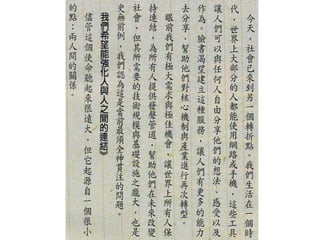 今天，社會已來到另一個轉折點。我們生活在一個時
代，世界上大部分的人都能使用網路或手機，這些工具
讓人們可以與任何人自由分享他們的想法、感受以及
作為。臉書渴望建立這種服務，讓人們有更多的能力
去分享，幫助他們對核心機制與產業進行再次轉型。
眼前我們有極大需求與極佳機會，讓世界上所有人保
持連結，為所有人提供發聲管道，幫助他們在未來改變
社會，但其所需要的技術規模與基礎設施之龐大，也是
史無前例，我們認為這是當前最須全神貫注的問題。
我們希望能強化人與人之間的連結》
儘管這個使命聽起來很遠大，但它起源自一個很小
的點：兩人間的關係。